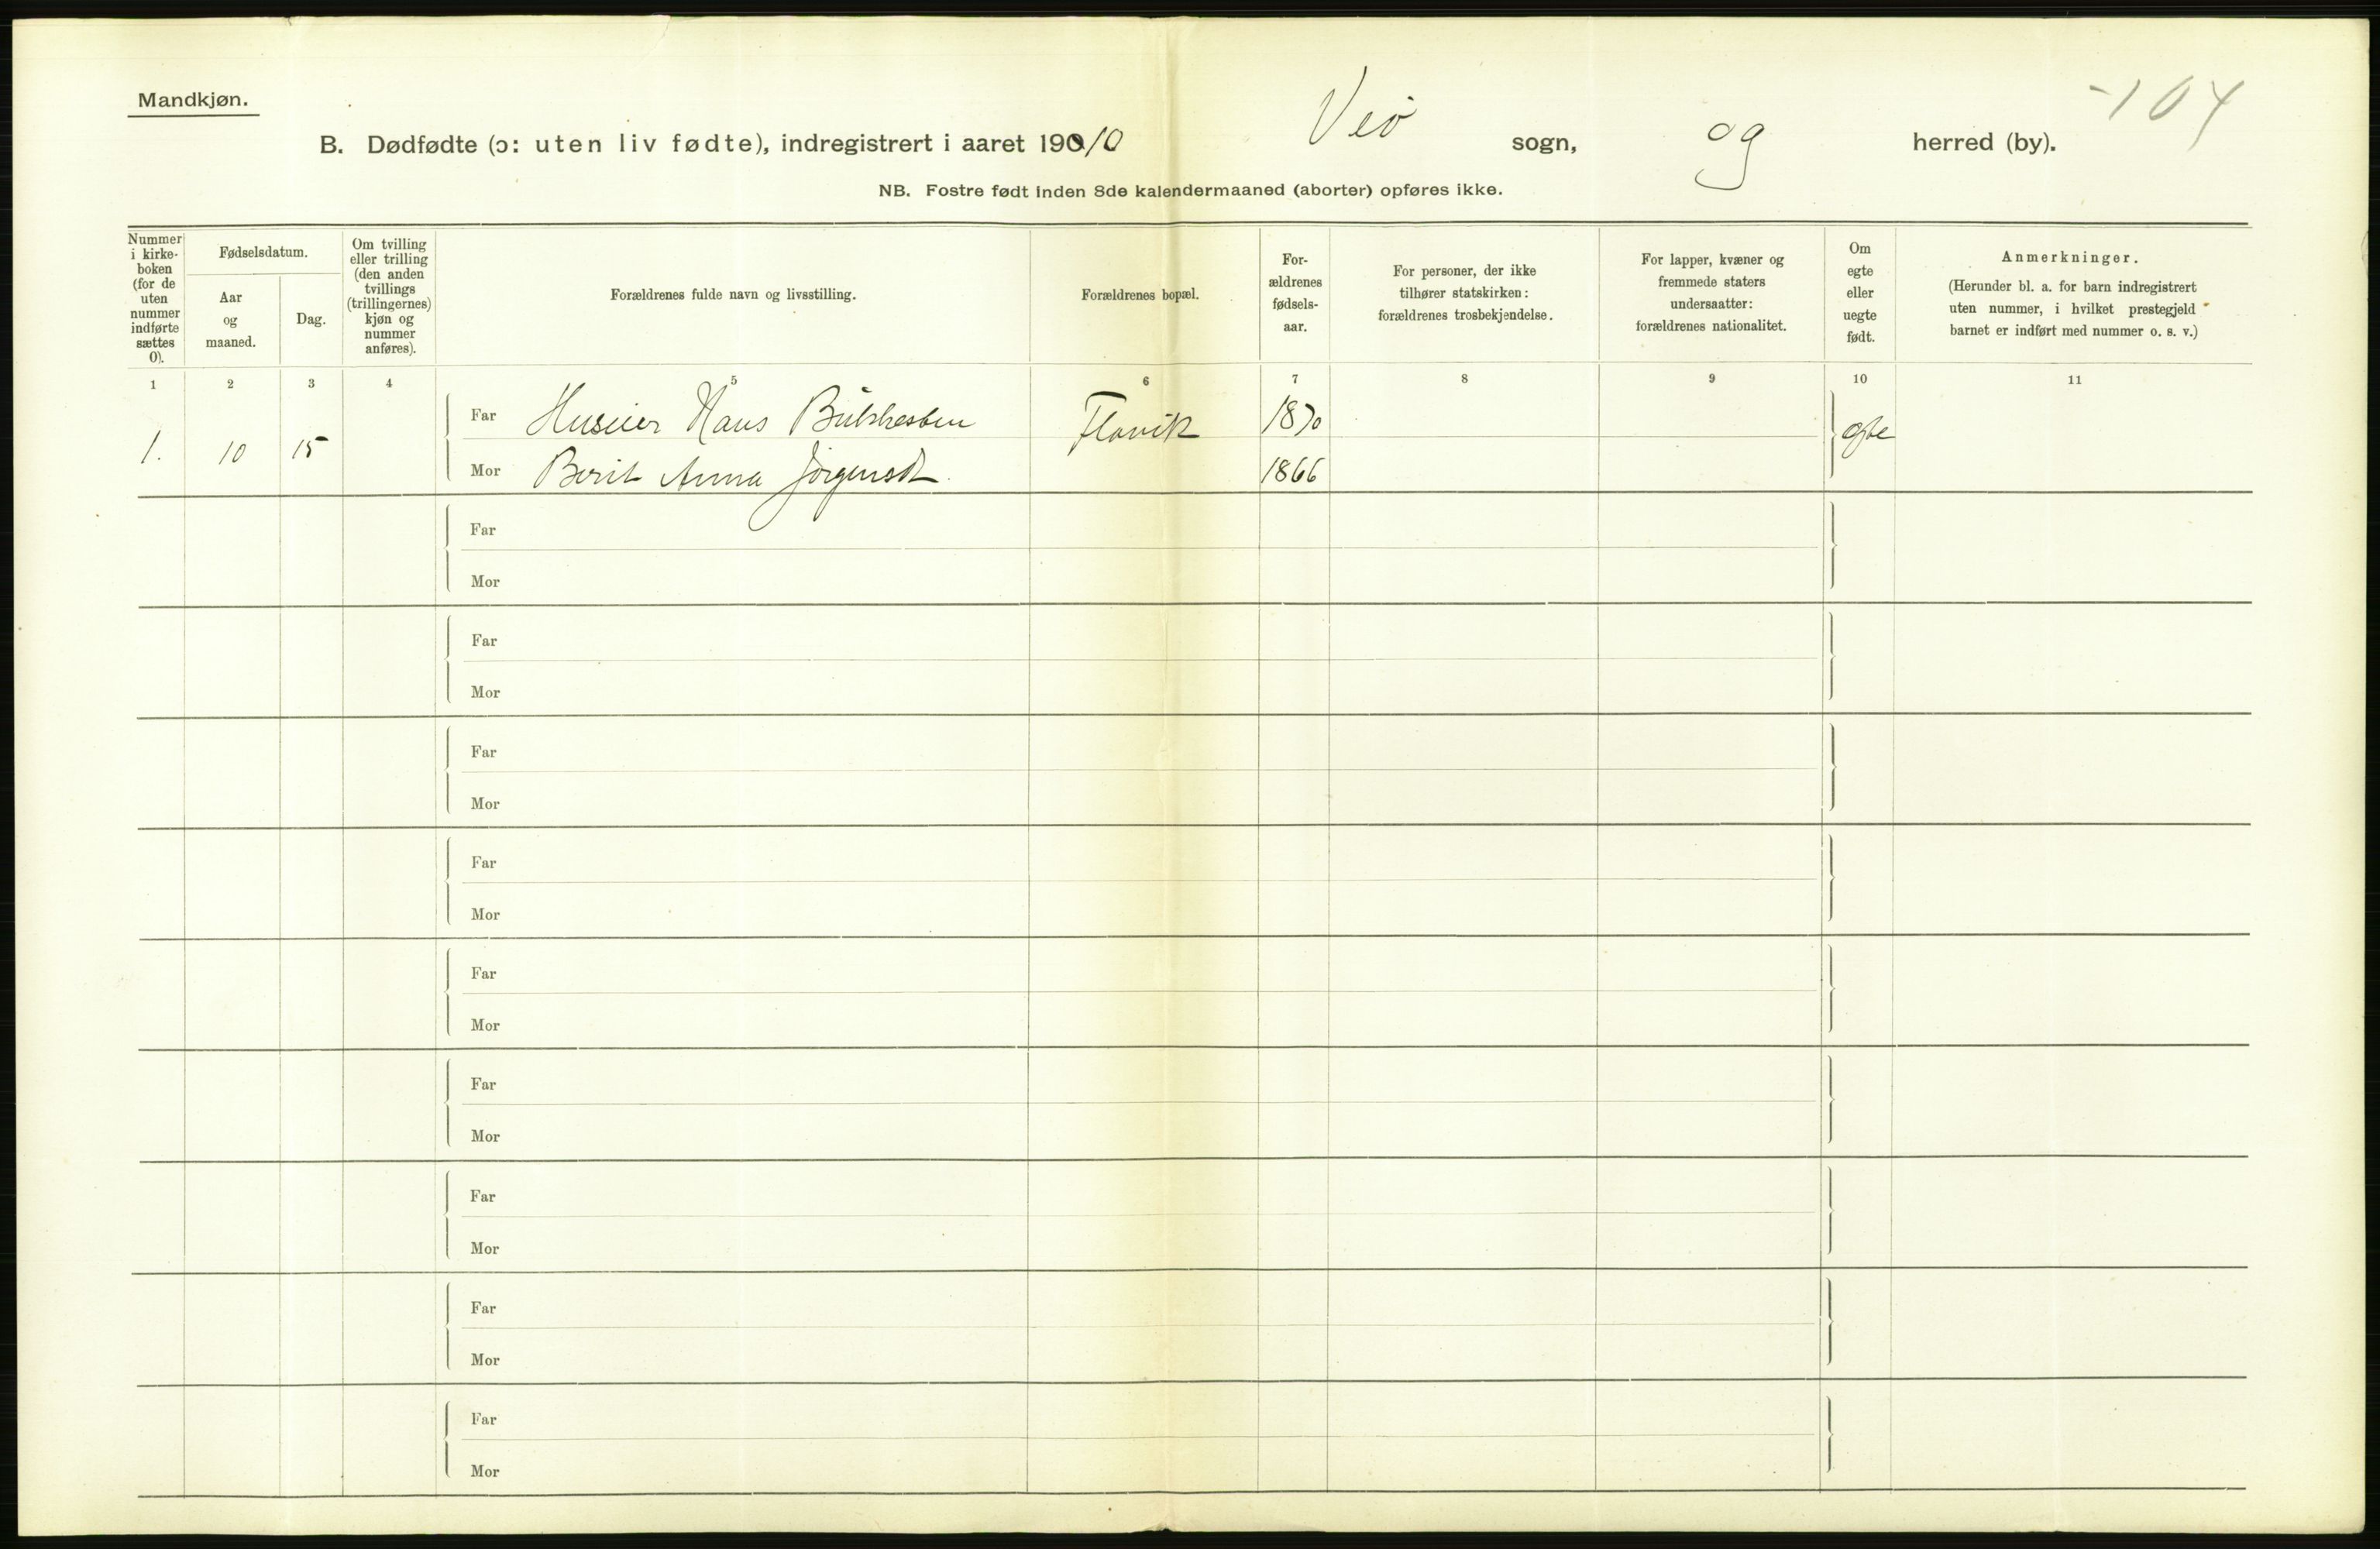 Mandkjøn.
-104
B. Dødfødte (ɔ: uten liv fødte), indregistrert i aaret 1910 Veö sogn, og herred (by).
NB. Fostre født inden 8de kalendermaaned (aborter) opføres ikke.
Nummer i kirke-boken (for de uten nummer indførte sættes 0).
Fødselsdatum.
Aar og maaned.
Dag.
Om tvilling eller trilling (den anden tvillings (trillingernes) kjøn og nummer anføres).
Forældrenes fulde navn og livsstilling.
Forældrenes bopæl.
For-ældrenes fødsels-aar.
For personer, der ikke tilhører statskirken: forældrenes trosbekjendelse.
For lapper, kvæner og fremmede staters undersaatter: forældrenes nationalitet.
Om egte eller uegte født.
Anmerkninger.
(Herunder bl. a. for barn indregistrert uten nummer, i hvilket prestegjeld barnet er indført med nummer o. s. v.)
1 2 3 4 5 6 7 8 9 10 11
1. 10 15 Far Huseier Hans Flovik 1870 egte
Mor Berit Anna Jörgensdt. 1866
Far
Mor
Far
Mor
Far
Mor
Far
Mor
Far
Mor
Far
Mor
Far
Mor
Far
Mor
Far
Mor